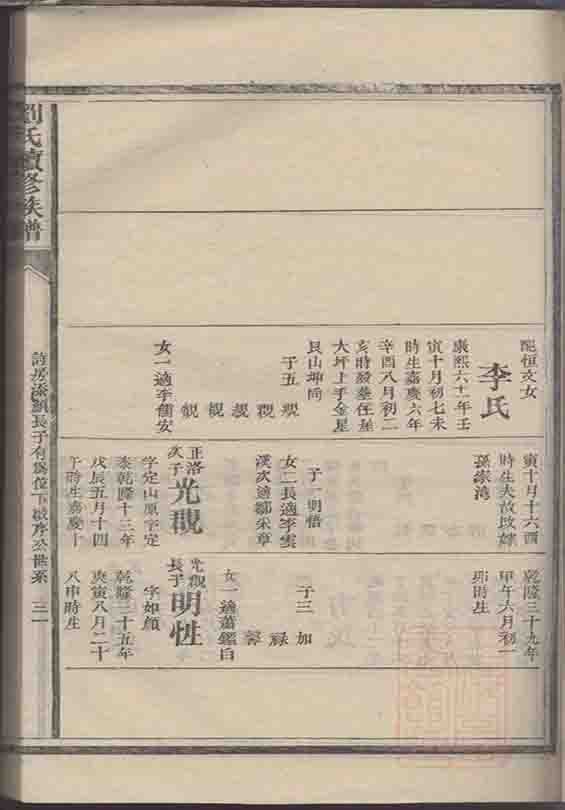 配恒文女
李氏
康熙六十一年壬
寅十月初七未
時生嘉慶六年
辛酉八月初二
亥時歿葬伍家
大坪上手金星
艮山坤向
子五
觀
觀
觀
觀
觀
女一適李儒安
寅十月十六酉
時生夫故改嫁
孫家湾
子一明悟
女二長適李雲
漢次適鄒宋章
正洛
次子
光觀
字定山原字定
泰乾隆十三年
戊辰五月十四
午時生嘉慶十
乾隆三十九年
甲午六月初一
卯時生
子三
如
祿
容
女一適蕭鑑白
光觀
長子
明性
字如顏
乾隆三十五年
庚寅八月二十
八申時生
劉氏續修族譜
長子有爲位下
公世系
三一